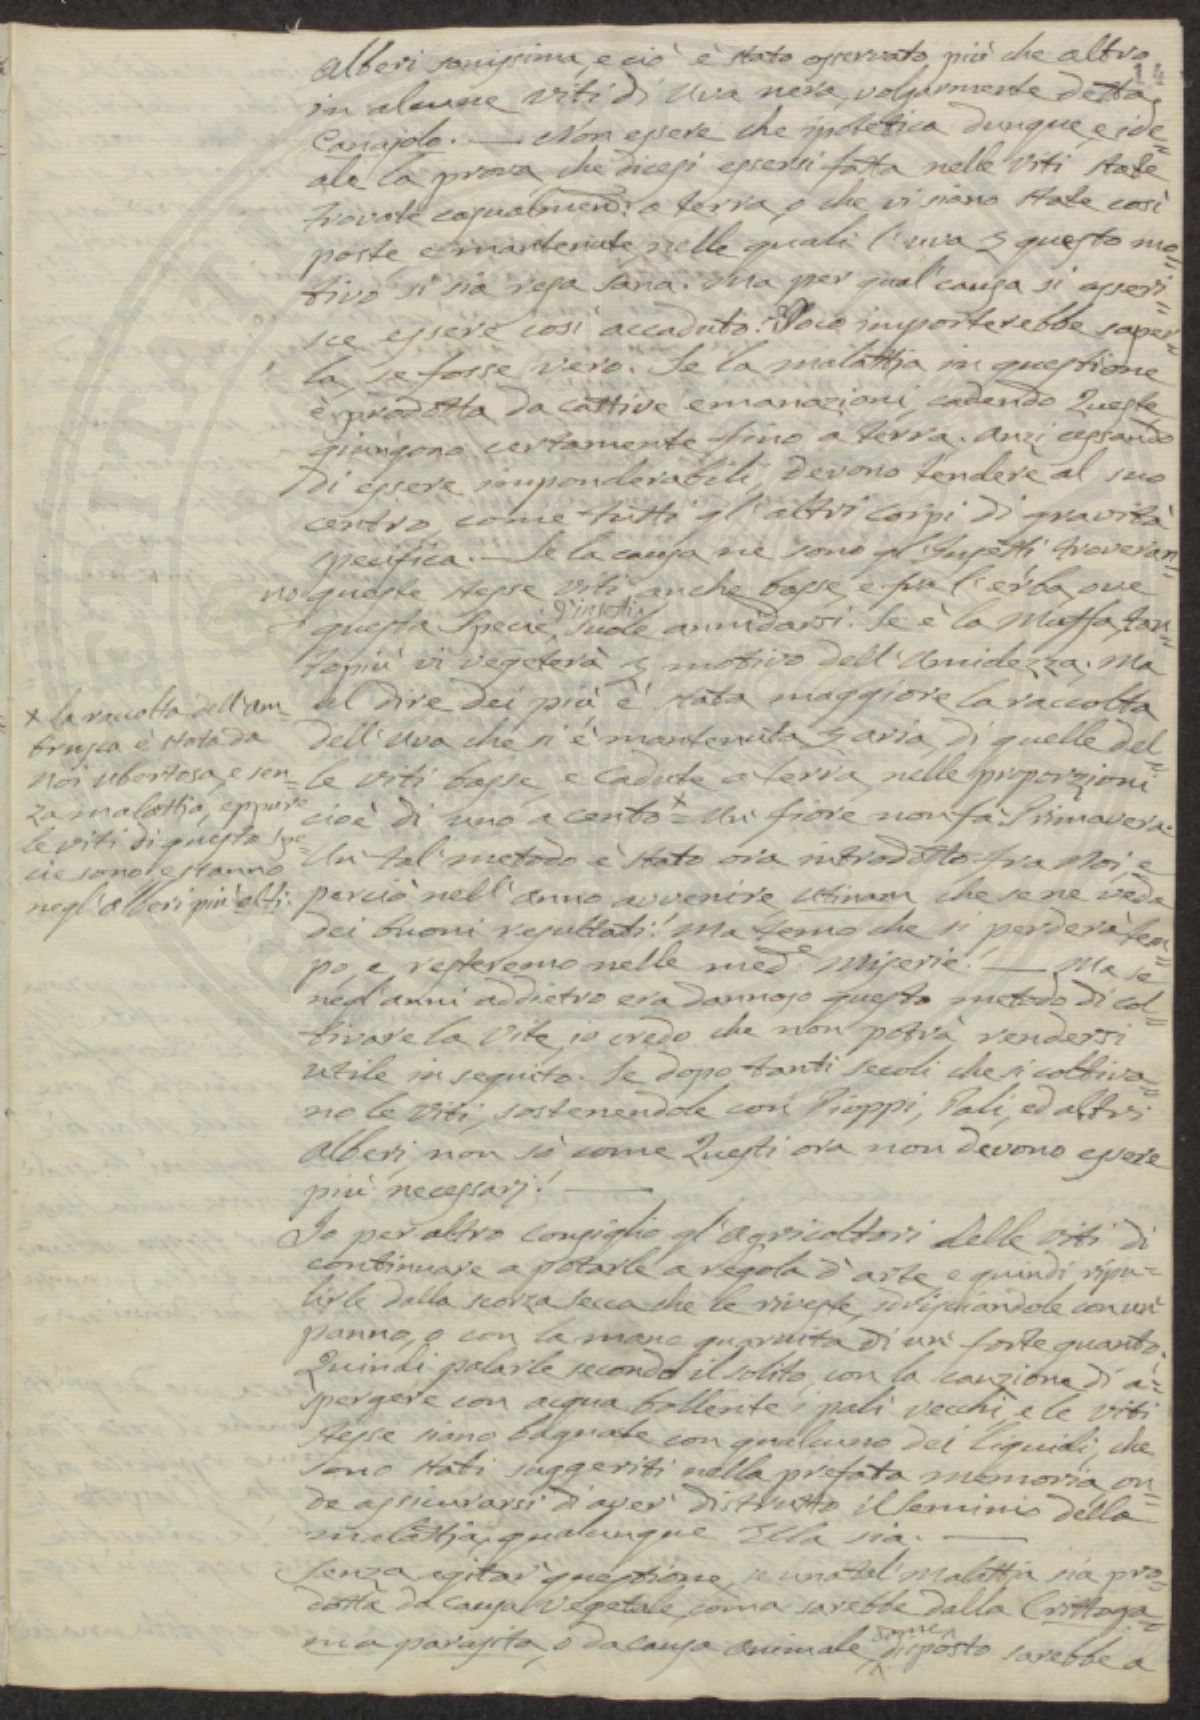 alberi sanissima, e ciò è stato osservato più che altro
in alcune viti di Uva nera, volgarmente detta
Canajolo. — Non essere che ipotetica dunque, e ide=
ale la prova, che dicesi essersi fatta nelle Viti state
trovate casualmen.e a terra, o che vi siano state così
poste e mantenute, nelle quali l'uva p questo mo=
tivo si sia resa sana. Ma per qual causa si asseri=
sce essere così accaduto? Poco importerebbe saper=
la, se fosse vero. Se la malattia in questione
è prodotta da cattive emanazioni, cadendo Queste
giungono certamente fino a terra. Anzi cessando
di essere imponderabili, devono tendere al suo
centro, come tutti gl'altri Corpi di gravità
specifica. — Se la causa ne sono gl'Insetti troveran=
no queste stesse Viti anche basse, e fra l'erba, ove
questa Specie d'insetti suole annidarsi. Se è la Muffa, tan=
topiù vi vegeterà p motivo dell'Umidezza. Ma
al dire dei più è stata maggiore la raccolta
dell'Uva che si è mantenuta p aria, di quelle del=
le viti basse, e cadute a terra, nelle proporzioni
cioè di uno a cento x = Un fiore non fa Primavera.
Un tal metodo è stato ora introdotto fra Noi, e
perciò nell'anno avvenire, utinam, che se ne veda
dei buoni resultati! Ma temo che si perderà tem=
po, e resteremo nelle med.e Miserie! — Ma se
negl'anni addietro era dannoso questo metodo di col=
tivare la Vite, io credo che non potrà rendersi
utile in seguito. Se dopo tanti secoli che si coltiva=
no le Viti, sostenendole con Pioppi, Pali, ed altri
alberi, non sò come Questi ora non devono essere
più necessarj! —
x la raccolta dell'am=
brusca è stata da
Noi ubertosa, e sen=
za malattia, eppure
le viti di questa spe=
cie sono, e stanno
negl'alberi più alti.
Io per altro consiglio gl'Agricoltori delle viti di
continuare a potarle a regola d'arte, e quindi ripu=
lirle dalla scorza secca che le riveste, strisciandole con un
panno, o con la mano guarnita di un forte guanto.
Quindi palarle secondo il solito, con la cauzione di a=
spergere con acqua bollente i pali vecchi, e le viti
stesse siano bagnate con qualcuno dei liquidi, che
sono stati suggeriti nella prefata memoria, on=
de assicurarsi di aver distrutto il seminio della
malattia, qualunque Ella sia. —
Senza agitar questione, se una tal Malattia sia pro=
dotta da causa Vegetale, come sarebbe dalla Crittoga=
ma parasita, o da causa animale, come disposto sarebbe a